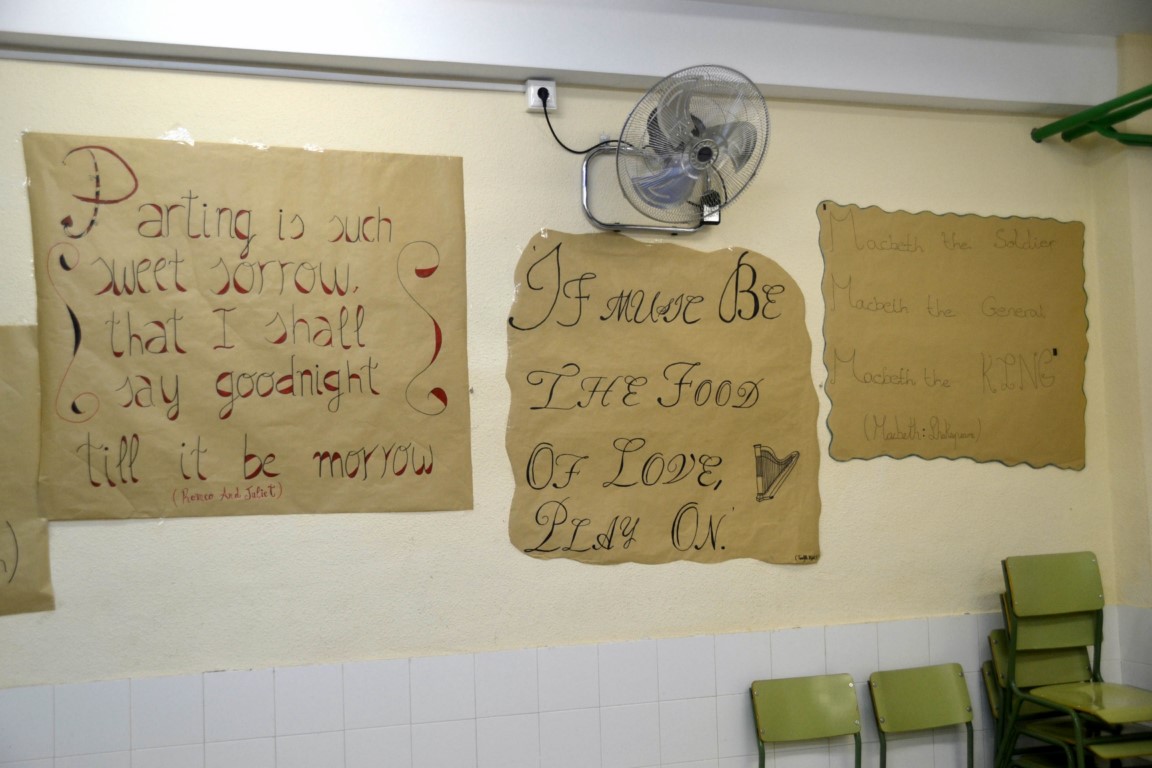 Parting is such
sweet sorrow,
that I shall
say goodnight
till it be morrow
(Romeo And Juliet)
'If music Be
The Food
Of Love,
Play On.'
"Macbeth the Soldier
Macbeth the General
Macbeth the KING"
(Macbeth: Shakespeare)